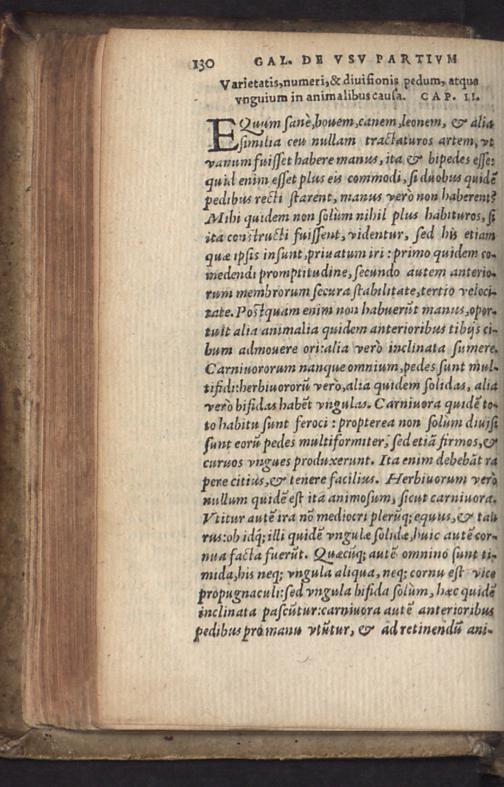 130 GAL. DE VSV PARTIVM
Varietatis, numeri, & diuisionis pedum, atque
vnguium in animalibus causa. CAP. II.
EQuum sanè, bouem, canem, leonem, & alia
similia ceu nullam tractaturos artem, vt
vanum fuisset habere manus, ita & bipedes esse:
quid enim esset plus eis commodi, si duobus quidē
pedibus recti starent, manus verò non haberent?
Mihi quidem non solùm nihil plus habituros, si
ita constructi fuissent, videntur, sed his etiam
quæ ipsis insunt, priuatum iri: primo quidem co-
medendi promptitudine, secundo autem anterio-
rum membrorum secura stabilitate, tertio veloci-
tate. Postquam enim non habuerūt manus, opor-
tuit alia animalia quidem anterioribus tibijs ci-
bum admouere ori: alia verò inclinata sumere.
Carniuororum nanque omnium, pedes sunt mul-
tifidi: herbiuororū verò, alia quidem solidas, alia
verò bifidas habēt vngulas. Carniuora quidē to-
to habitu sunt feroci: propterea non solùm diuisi
sunt eorū pedes multiformiter, sed etiā firmos, &
curuos vngues produxerunt. Ita enim debebāt ra
pere citius, & tenere facilius. Herbiuorum verò
nullum quidē est ita animosum, sicut carniuora.
Vtitur autē ira nō mediocri plerūq; equus, & tau
rus: ob idq; illi quidē vngulæ solidæ, huic autē cor-
nua facta fuerūt. Quæcūq; autē omnino sunt ti-
mida, his neq; vngula aliqua, neq; cornu est vice
propugnaculi: sed vngula bifida solùm, hæc quidē
inclinata pascūtur: carniuora autē anterioribus
pedibus pro manu vtūtur, & ad retinendū ani-